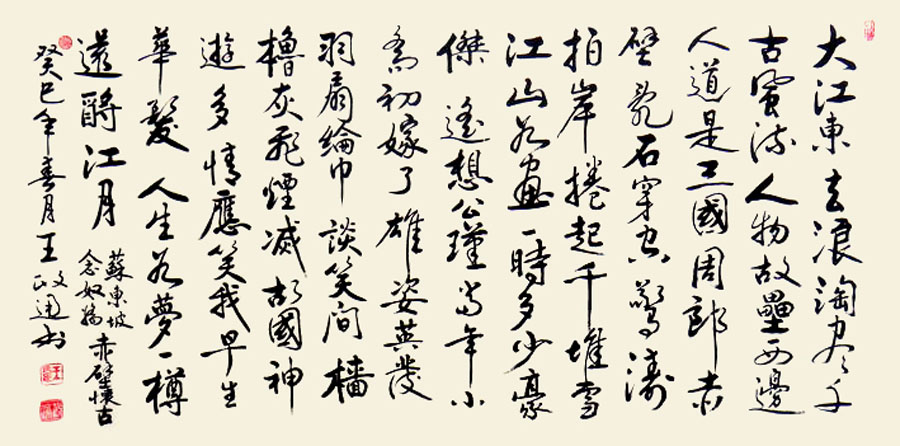 大江東去浪淘盡千
古風流人物故壘西邊
人道是三國周郎赤
壁亂石穿空驚濤
拍岸捲起千堆雪
江山如畫一時多少豪
傑遙想公瑾當年小
喬初嫁了雄姿英發
羽扇綸巾談笑間檣
櫓灰飛煙滅故國神
遊多情應笑我早生
華髮人生如夢一樽
還酹江月
蘇東坡
念奴嬌
赤壁懷古
癸巳年春月王政通书